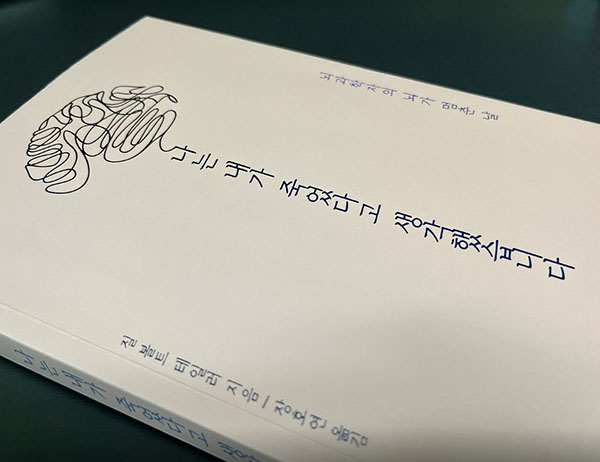 뇌과학자의 뇌가 멈춘 날
나는 내가 죽었다고 생각했습니다
질 볼트 테일러 지음 | 장호연 옮김
나는 내가 죽었다고 생각